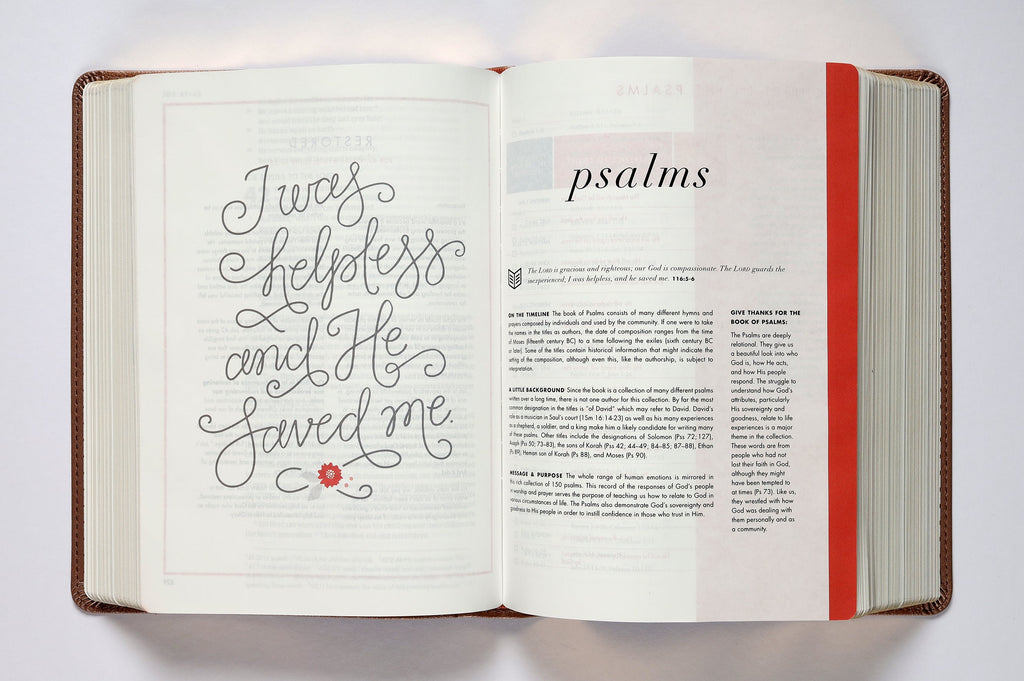 I was
helpless
and He
saved me.
psalms
The LORD is gracious and righteous; our God is compassionate. The LORD guards the
inexperienced; I was helpless, and he saved me. 116:5-6
ON THE TIMELINE The book of Psalms consists of many different hymns and
prayers composed by individuals and used by the community. If one were to take
the names in the titles as authors, the date of composition ranges from the time
of Moses (fifteenth century BC) to a time following the exiles (sixth century BC
or later). Some of the titles contain historical information that might indicate the
setting of the composition, although even this, like the authorship, is subject to
interpretation.
A LITTLE BACKGROUND Since the book is a collection of many different psalms
written over a long time, there is not one author for this collection. By far the most
common designation in the titles is "of David" which may refer to David. David's
role as a musician in Saul's court (1Sm 16:14-23) as well as his many experiences
as a shepherd, a soldier, and a king make him a likely candidate for writing many
of these psalms. Other titles include the designations of Solomon (Pss 72; 127),
Asaph (Pss 50; 73–83), the sons of Korah (Pss 42, 44–49; 84–85; 87–88), Ethan
(Ps 89), Heman son of Korah (Ps 88), and Moses (Ps 90).
MESSAGE & PURPOSE The whole range of human emotions is mirrored in
this rich collection of 150 psalms. This record of the responses of God's people
in worship and prayer serves the purpose of teaching us how to relate to God in
various circumstances of life. The Psalms also demonstrate God's sovereignty and
goodness to His people in order to instill confidence in those who trust in Him.
GIVE THANKS FOR THE
BOOK OF PSALMS:
The Psalms are deeply
relational. They give us
a beautiful look into who
God is, how He acts,
and how His people
respond. The struggle to
understand how God's
attributes, particularly
His sovereignty and
goodness, relate to life
experiences is a major
theme in the collection.
These words are from
people who had not
lost their faith in God,
although they might
have been tempted to
at times (Ps 73). Like us,
they wrestled with how
God was dealing with
them personally and as
a community.